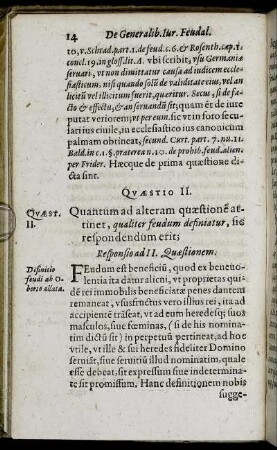 14 De Generalib. Iur. Feudal.
10, v. Schrad. part. 1. de feud. s. 6. & Rosenth. cap. 1.
concl. 19. in gloss. lit. a. vbi scribit, vsu Germaniæ
seruari, vt non dimittatur causa ad iudicem eccle-
siasticum, nisi quando solũ de validitate eius, vel an
licitũ vel illicitum fuerit, quæritur. Secus, si de fa-
cto & effectu, & an seruandũ sit; quam & de iure
putat veriorem; vt per eum, sic vt in foro secu-
lari ius ciuile, in ecclesiastico ius canonicum
palmam obtineat, secund. Curt. part. 7. nu. 11.
Bald. in c. 1. §. præterea n. 10. de prohib. feud. alien.
per Frider. Hæcque de prima quæstione di-
cta sint.
QVÆSTIO II.
QVÆST.
II.
Quantum ad alteram quæstionẽ at-
tinet, qualiter feudum definiatur, sic
respondendum erit:
Responsio ad II. Quæstionem.
Definitio
feudi ab O-
berto allata.
Feudum est beneficiũ, quod ex beneuo-
lentia ita datur alicui, vt proprietas qui-
dẽ rei immobilis beneficiatæ penes dantem
remaneat, vsusfructus vero illius rei, ita ad
accipientẽ trãseat, vt ad eum heredesq́; suos
masculos, siue fœminas, ( si de his nomina-
tim dictũ sit) in perpetuũ pertineat, ad hoc
vtile, vt ille & sui heredes fideliter Domino
seruiãt, siue seruitiũ illud nominatim, quale
esse debeat, sit expressum siue indetermina-
te sit promissum. Hanc definitionem nobis
sugge-